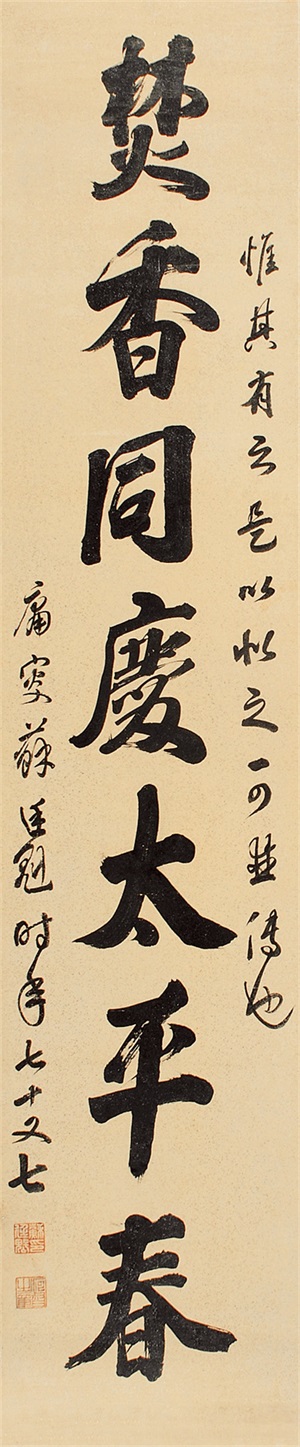 惟其有之是以似之可並傳也
焚香同慶太平春
庸叟蘇廷魁時年七十又七